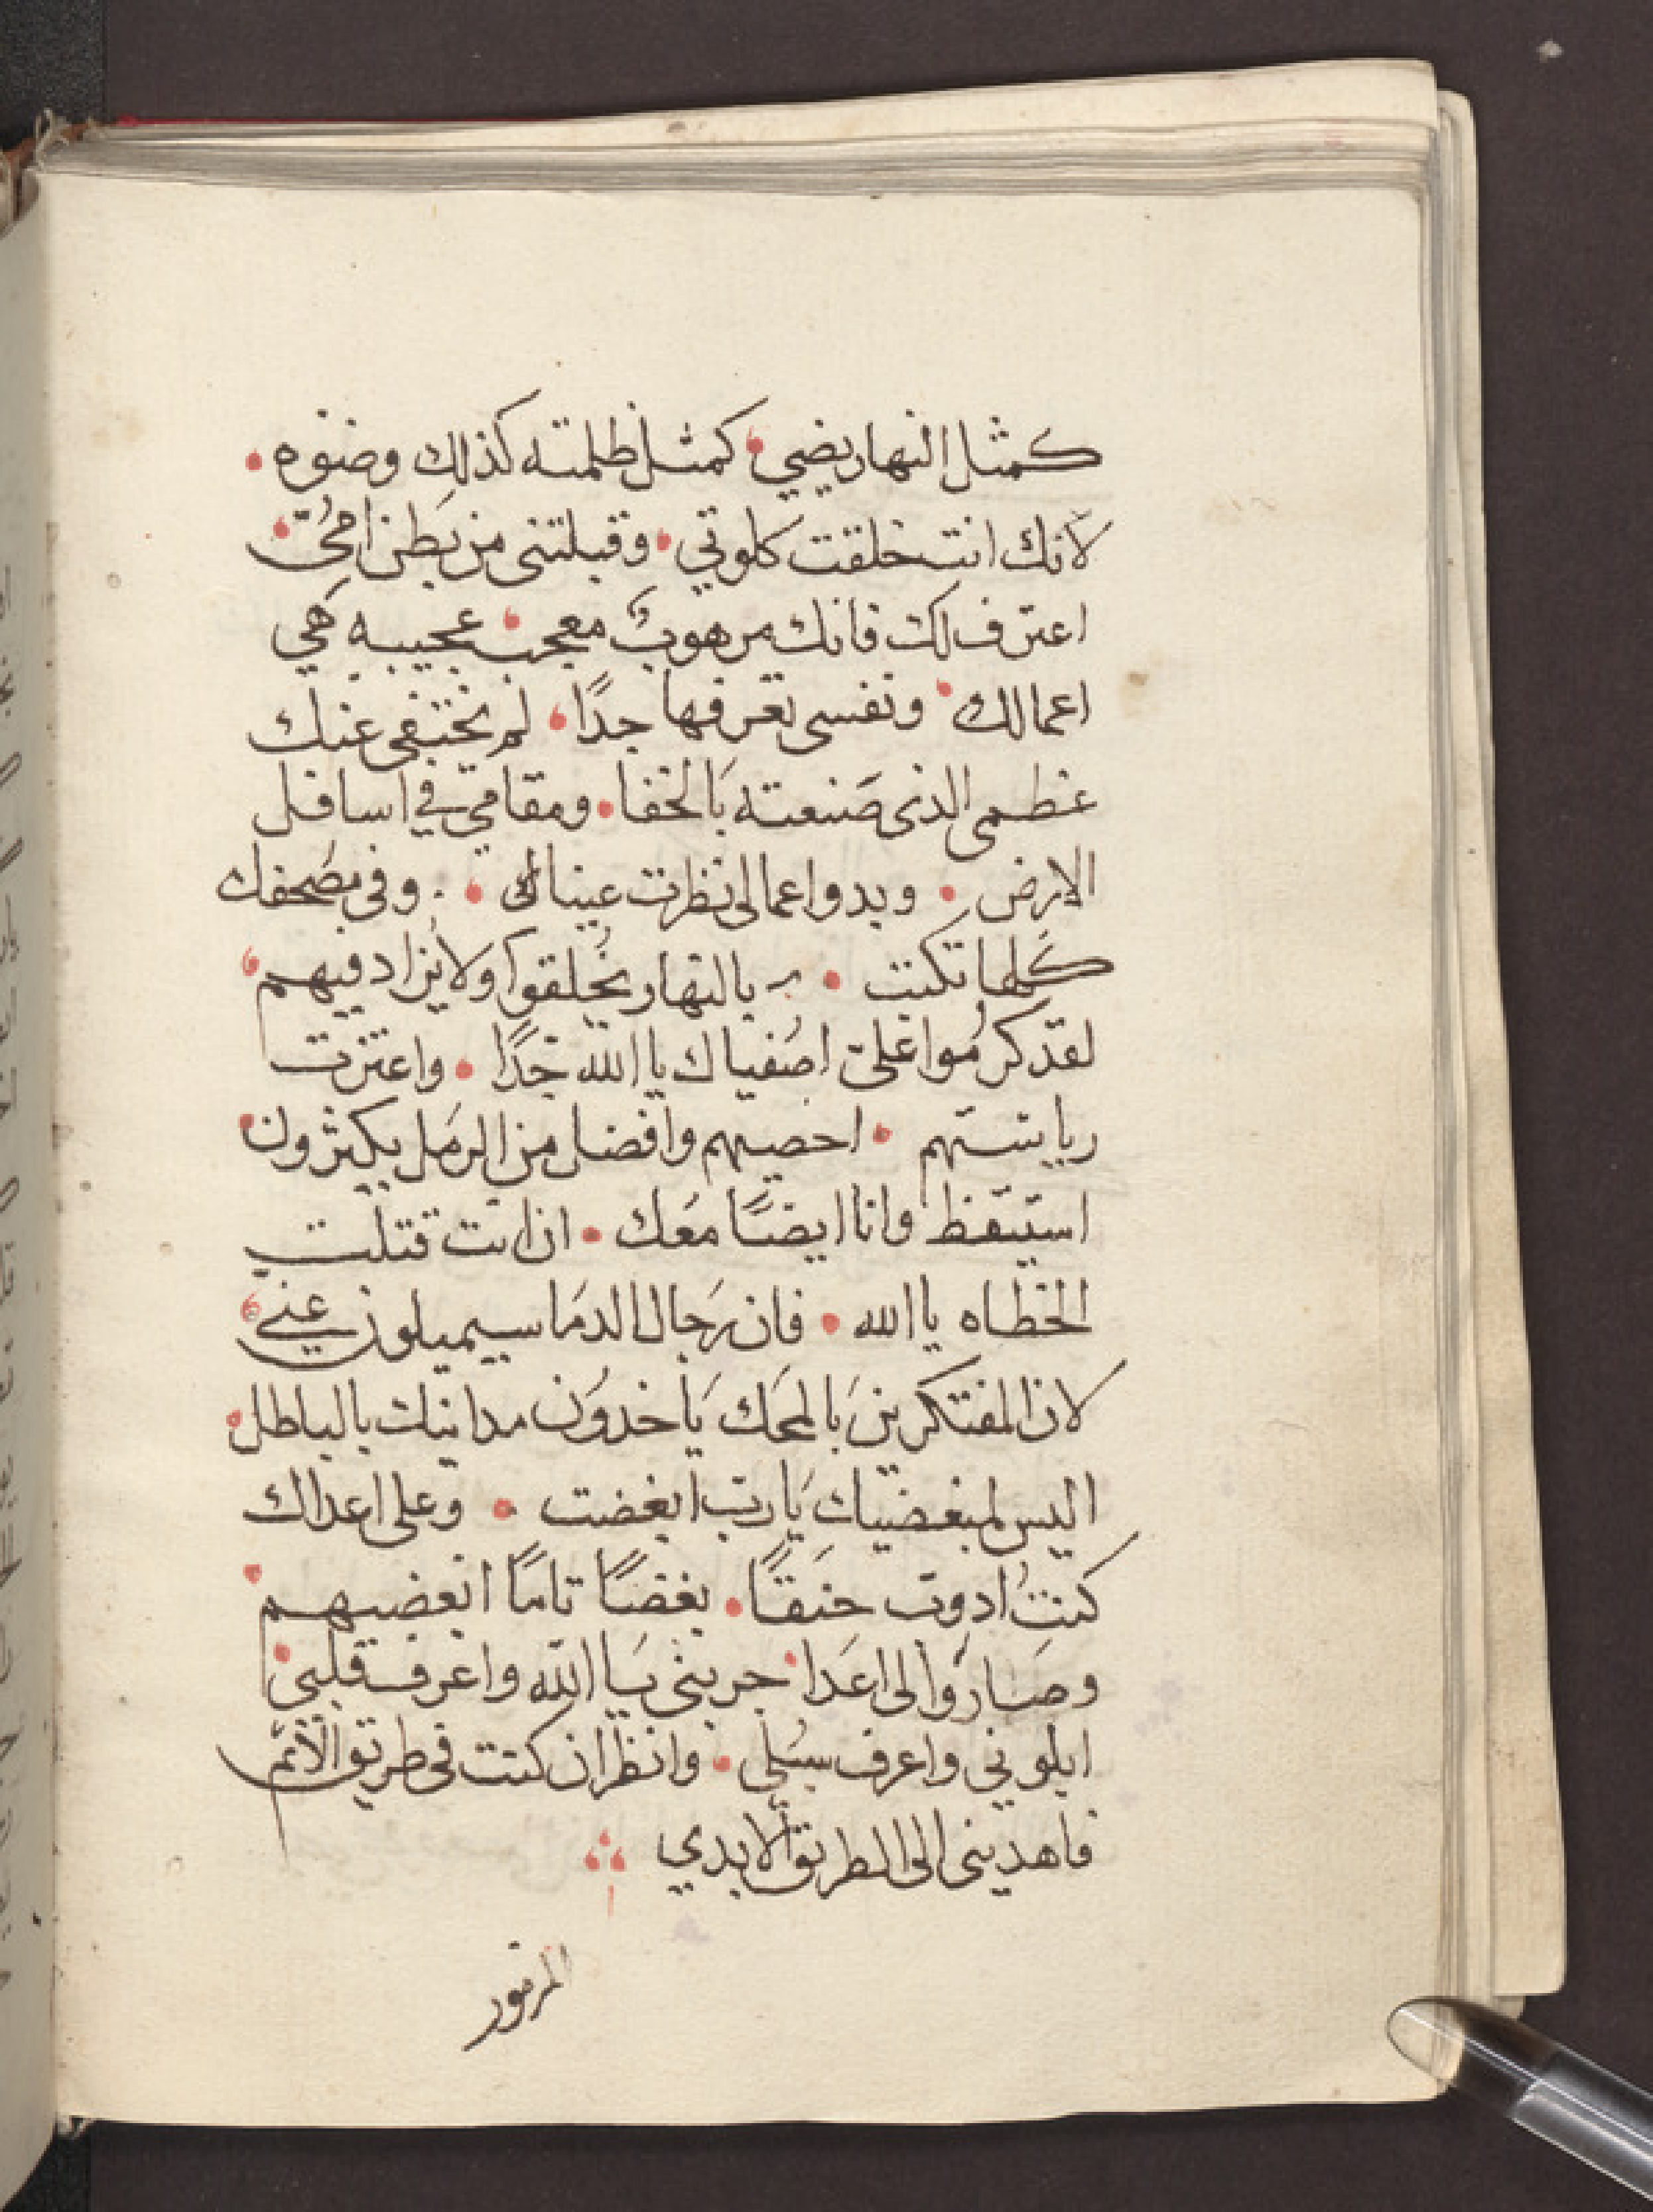 كمثل النهار يضيي كمثل ظلمته كذلك وضؤه
لانك انت خلقت كلوتي وقبلتني من بطن امي
اعترف لك فانك مرهوبٌ معجب عجيبه هي
اعمالك ونفسي تعرفها جدًا لم تختفي عنك
عظمي الذي صنعته بالخفا ومقامي في اسافل
الارض وبدو اعمالي نظرت عيناك وفي مصحفك
كلها تكتب بالنهار يخلقوا ولا يزاد فيهم
لقد كرموا عليّ اصفياك يا الله جدًا واعتزت
رياستهم احصيهم وافضل من الرمل يكثرون
استيقظ وانا ايضًا معك ان انت قتلت
الخطاه يا الله فان رجال الدما سيميلون عني
لان المفتكرين بالمحك ياخدون مداينك بالباطل
اليس لمبغضيك يا رب ابغضت وعلى اعداك
كنتُ ادوب حنقًا بغضًا تامًا ابغضيهم
وصاروا لي اعدا جربني يا الله واعرف قلبي
ابلوني واعرف سبلي وانظر ان كنت في طريق الاثم
فاهديني الى الطريق الابدي
المزمور